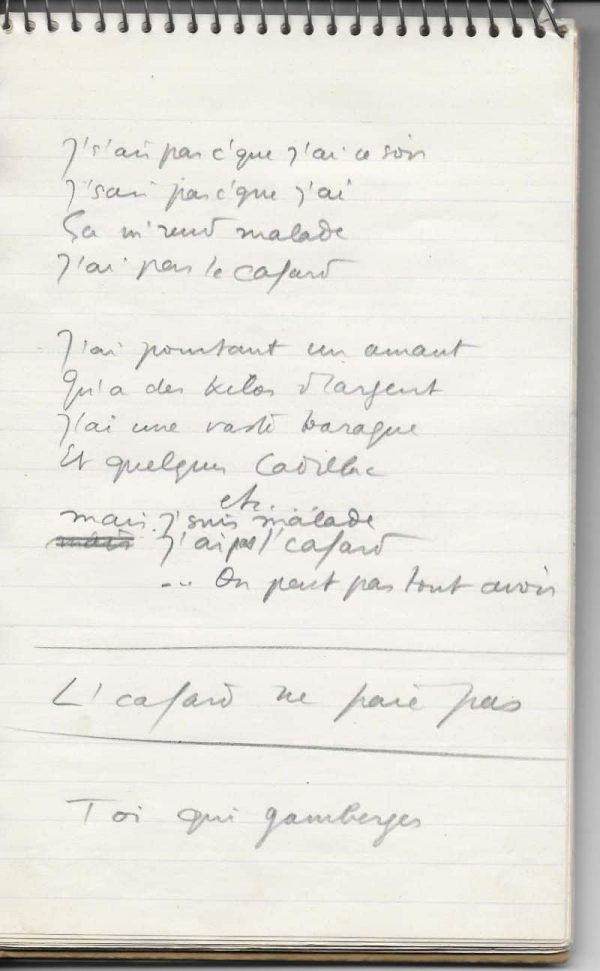 J's'ais pas c'que j'ai ce soir
J'sais pas c'que j'ai
Ça m'rend malade
J'ai pas le cafard
J'ai pourtant un amant
Qu'a des kilos d'argent
J'ai une vaste baraque
Et quelques Cadillac
etc.
mais j'suis malade
mais j'ai pas l'cafard
... On peut pas tout avoir
L'cafard ne paie pas
Toi qui gamberges